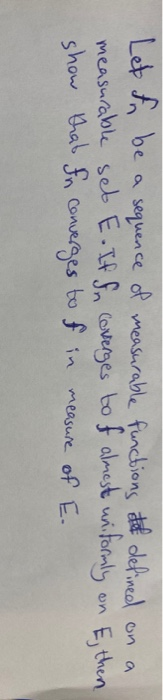 Let fn be a sequence of measurable functions defined on a
measurable set E. If fn coverges to f almost uniformly on E, then
show that fn converges to f in measure of E.